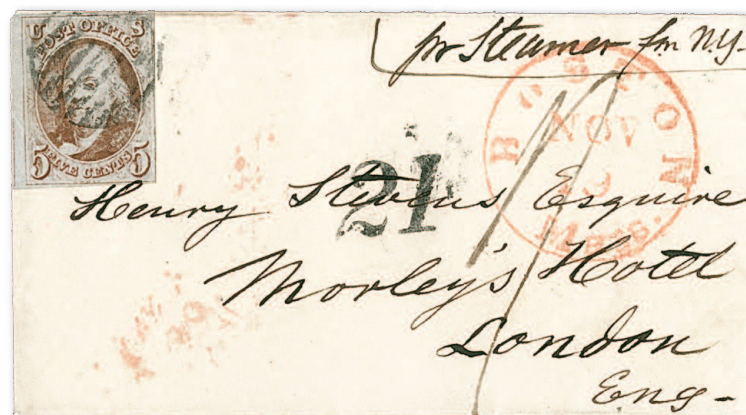 U S
POST OFFICE
5 FIVE CENTS 5
pr Steamer fm N.Y.
BOSTON
NOV
Mass.
21
Henry Stevens Esquire
Morley's Hotel
London
Eng-